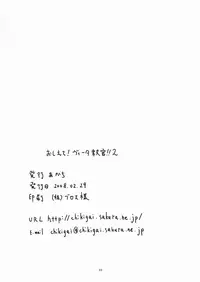 おしえて!ヴィータ教官!!2
発行 あかち
発行日 2008.02.29
印刷 (株)プロス様
URL http://chikigai.sakura.ne.jp/
E-mail chikigai@chikigai.sakura.ne.jp